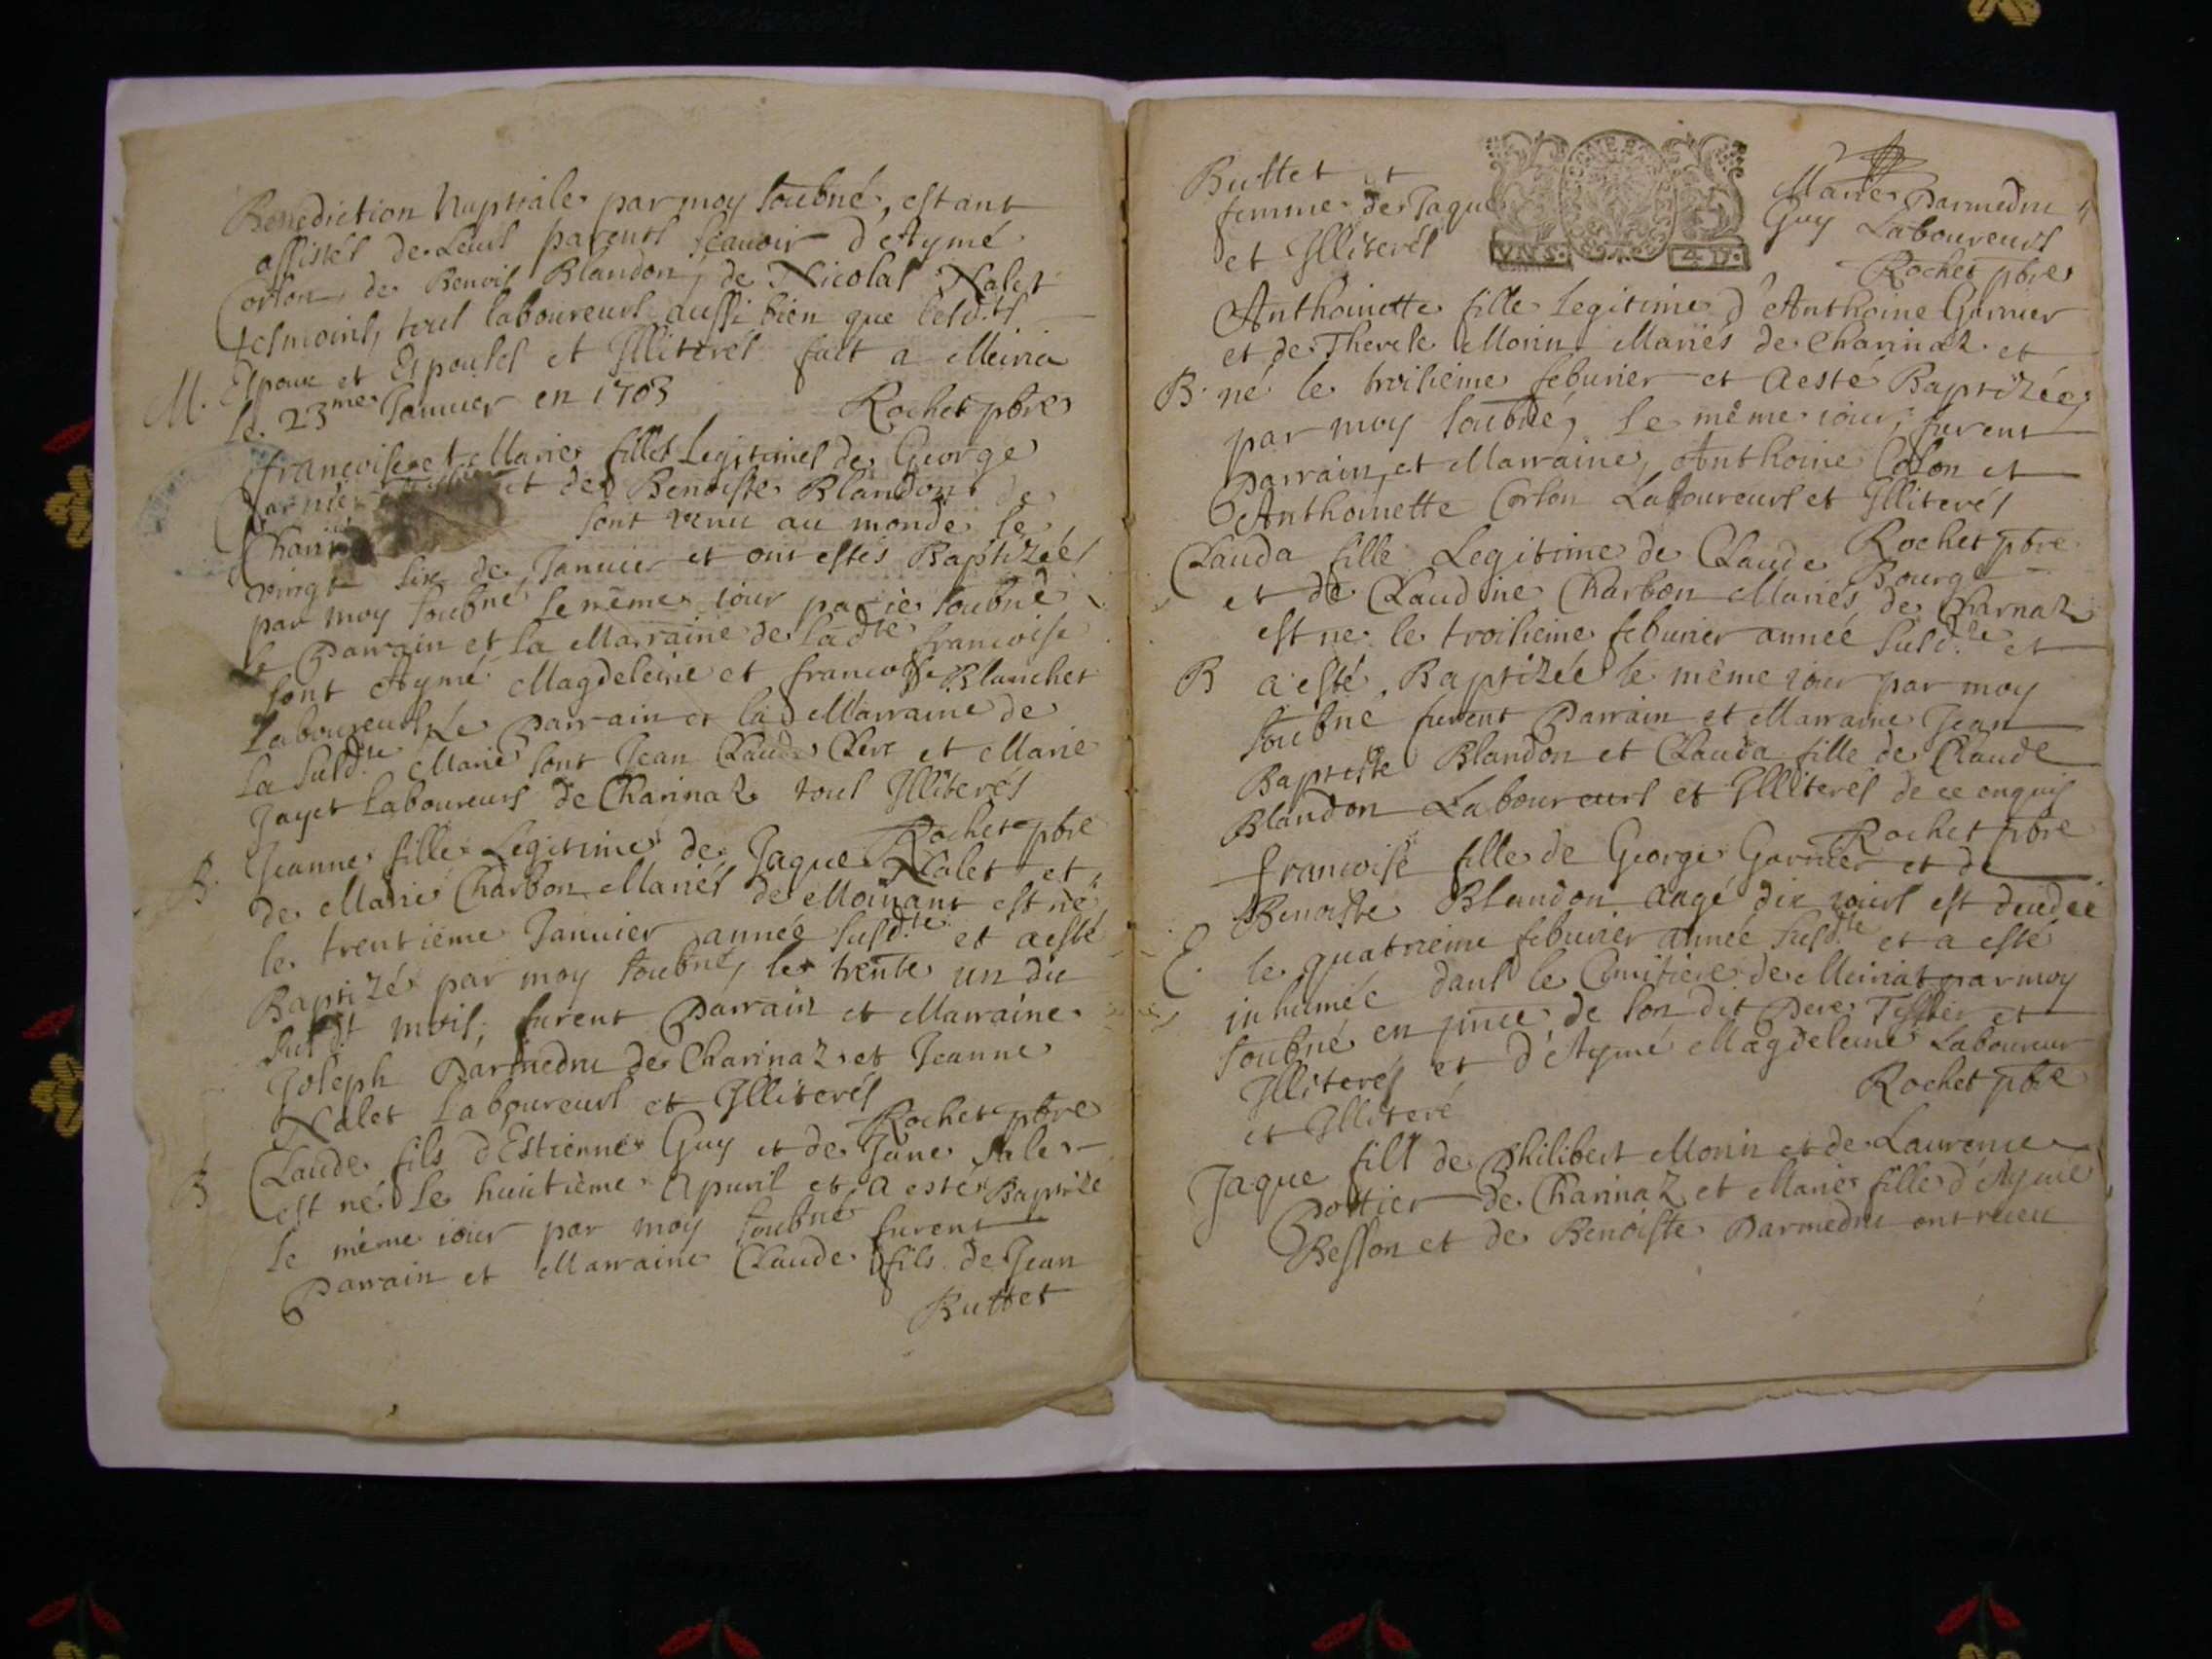 Benediction Nuptiale par moy soubné, estant
assistés de leurs parents scauoir d'Aymé
Corton, de Benoit Blandon, de Nicolas Nalet
tesmoins, tous laboureurs aussi bien que lesd.ts
M. Espoux et Espouses et Illiterés fait a Meiria
le 23me Januier en 1703
Rochet pbre
francoise et Marie filles Legitimes de George
Garnier et de Benoiste Blandon de
Charin sont venu au monde le
vingt six de Januier et ont estés Baptizées
par moy soubné le même iour par ie soubné
le Parrain et la Marraine de ladte francoise
sont Aymé Magdeleine et francoise Blanchet
Laboureurs Le Parrain et la Marraine de
la susd.te Marie sont Jean Claude Clerc et Marie
Jayet laboureurs de Charinaz tous Illiterés
Rochet pbre
B. Jeanne fille Legitime de Jaque Nalet et
de Marie Charbon Mariés de Moinant est né
le trentieme Januier année susd.te et a esté
Baptizé par moy soubné, le trente un du
susd.t mois, furent Parrain et Marraine
Joseph Parmedru de Charinaz et Jeanne
Nalet laboureurs et Illiterés
Rochet pbre
B Claude fils d'Estienne Guy et de Jane
est né le huictième Apuril et a esté Baptize
le même iour par moy soubné furent
Parrain et Marraine Claude fils de Jean
Buttet
Buttet et Marie Parmedru
femme de Jaque Guy Laboureurs
et Illiterés
VN S. 4 D.
Rochet pbre
Anthoinette fille legitime d'Anthoine Garnier
et de Therese Morin Mariés de Charinaz et
B. né le troisieme feburier et a esté Baptizée
par moy soubné, le même iour, furent
Parrain et Marraine, Anthoine Colon et
Anthoinette Corton Laboureurs et Illiterés
Rochet pbre
Clauda fille Legitime de Claude Bourg
et de Claudine Charbon Mariés de Charnaz
est ne le troisieme feburier année susd.te et
B a esté Baptizée le même iour par moy
soubné furent Parrain et Marraine Jean
Baptiste Blandon et Clauda fille de Claude
Blandon Laboureurs et Illiterés de ce enquis
Rochet pbre
francoise fille de George Garnier et de
Benoiste Blandon aagé dix iours est decedée
E. le quatrieme feburier année susd.te et a esté
inhumée dans le Cimitiere de Meiriat par moy
soubné en pnce de son dit Pere Tissier et
Illiterés et d'Aymé Magdeleine Laboureur
et Illiteré
Rochet pbre
Jaque fils de Philibert Morin et de Laurence
Pottier de Charinaz et Marie fille d'Aymé
Besson et de Benoiste Parmedru ont receu